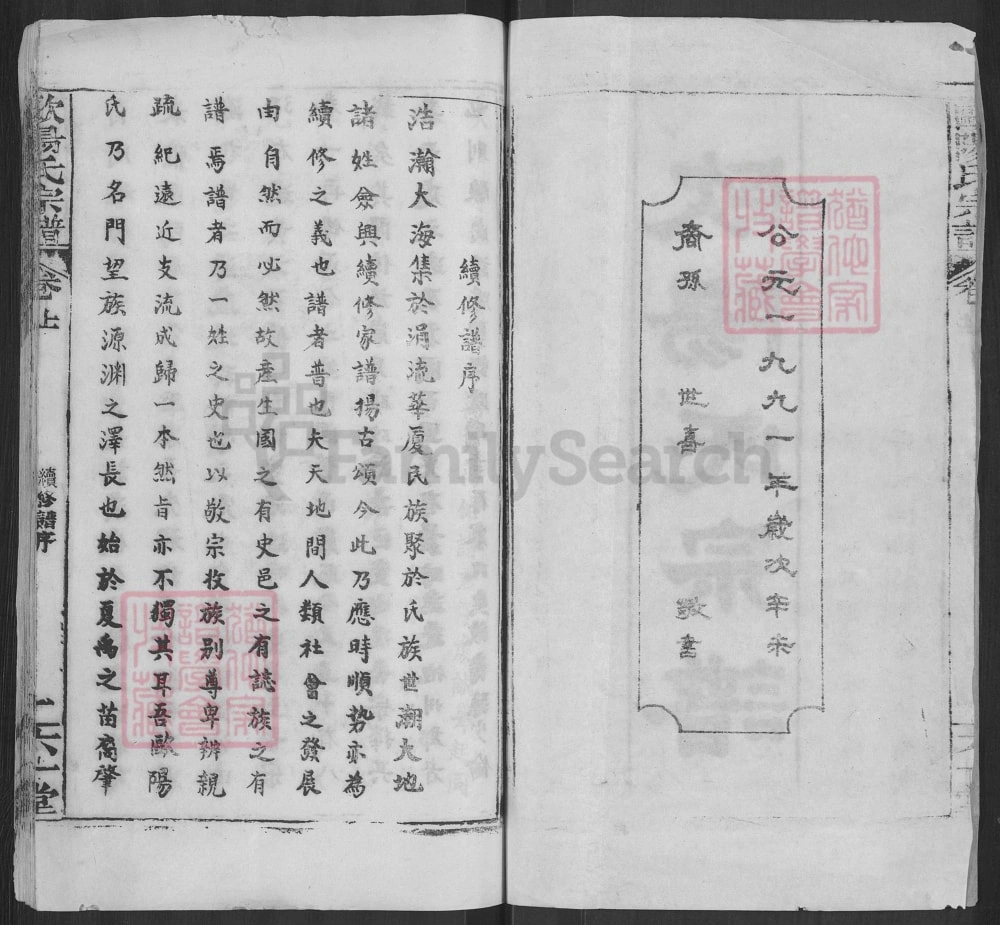 公元一九九一年歲次辛未
裔孫 世喜 敬書
續修譜序
浩瀚大海集於涓流華厦民族聚於氏族世潮大地
諸姓僉興續修家譜揚古頌今此乃應時順势亦為
續修之義也譜者普也夫天地間人類社會之發展
由自然而必然故產生國之有史邑之有誌族之有
譜焉譜者乃一姓之史也以敬宗收族别尊卑辨親
疏紀遠近支流成歸一本然旨亦不獨其耳吾歐陽
氏乃名門望族源渊之澤長也始於夏禹之苗裔肇
歐陽氏宗譜
卷上
續修譜序
六一堂
FamilySearch